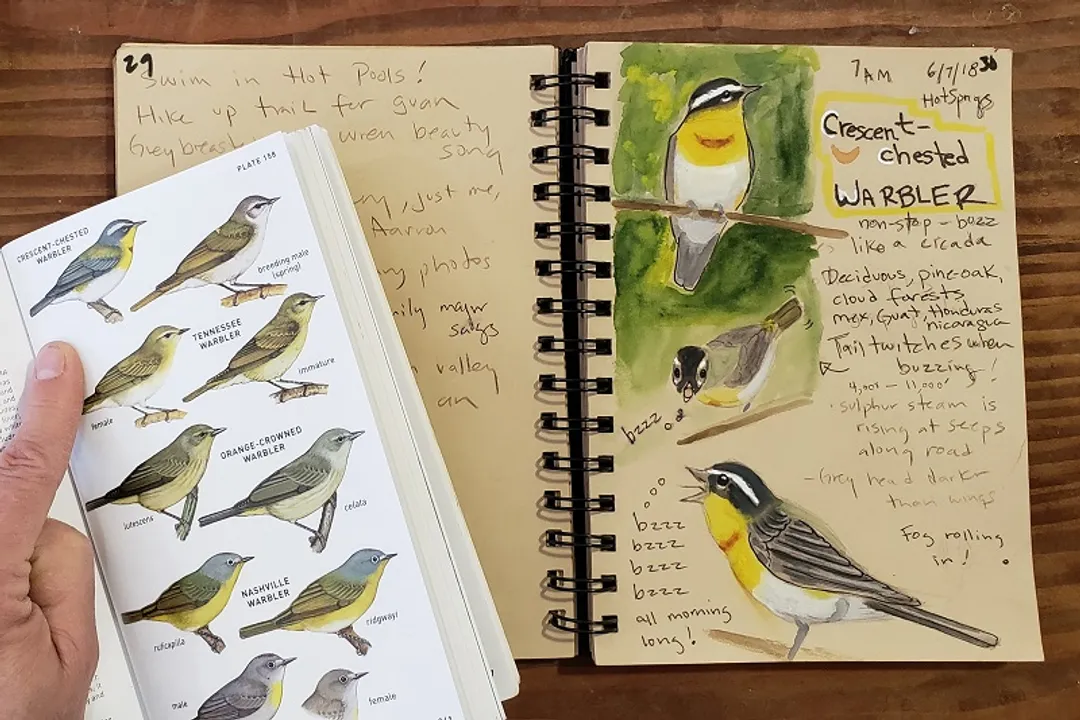 29
Swim in Hot Pools!
Hike up trail for guan
Greybreast wren beauty
song
, just me,
Aarron
photos
major
songs
valley
an
PLATE 158
CRESCENT-CHESTED
WARBLER
breeding male
(spring)
TENNESSEE
WARBLER
immature
female
ORANGE-CROWNED
WARBLER
lutescens
celata
NASHVILLE
WARBLER
ruficapilla
ridgwayi
male
female
7 AM 6/7/18 30
HotSprngs
Crescent-
chested
WARBLER
non-stop - bozz
like a cicada
Deciduous, pine-oak,
cloud forests
mex, Guat, Honduras
nicaragua
Tail twitches when
buzzing!
4,000 - 11,000'
• sulphur steam is
rising at seeps
along road
- Grey head darker
than wings
Fog rolling
in!
bzzz
bzzz
bzzz
bzzz
bzzz
all morning
long!